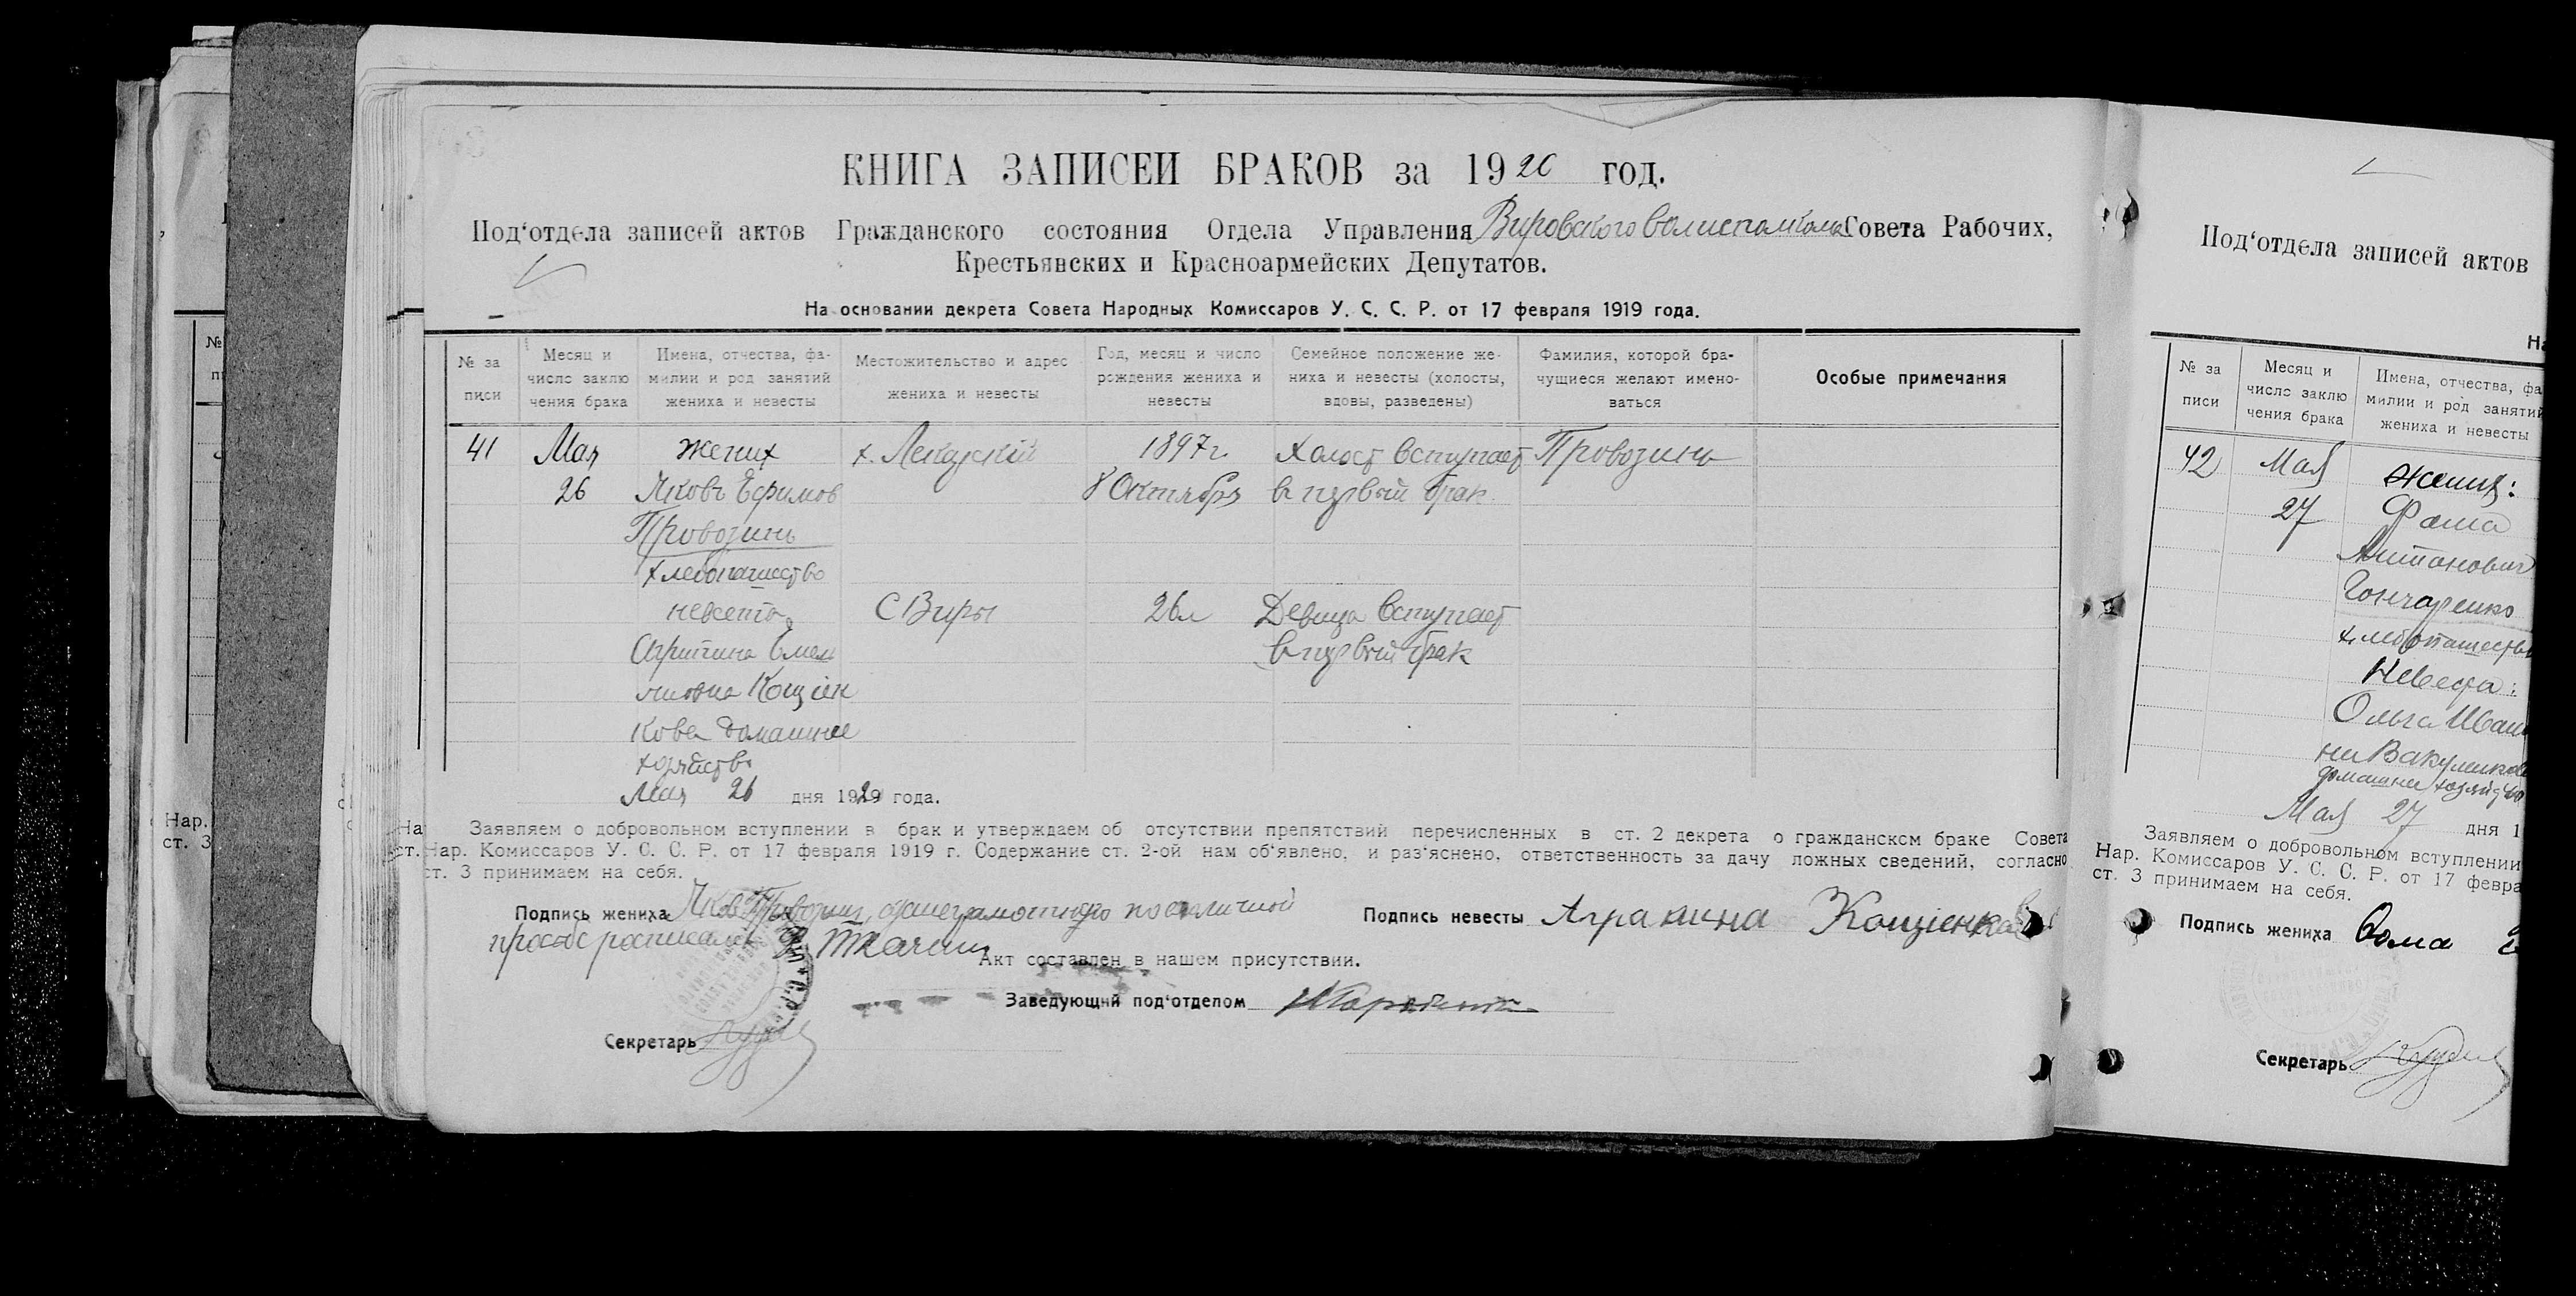 КНИГА ЗАПИСЕИ БРАКОВ за 1920 год.
Под‘отдела записей актов Гражданского состояния Отдела Управления Вировского Волисполкома Совета Рабочих,
Крестьянских и Красноармейских Депутатов.
На основании декрета Совета Народных Комиссаров У. С. С. Р. от 17 февраля 1919 года.
№ за писи
Месяц и число заклю чения брака
Имена, отчества, фа- милии и род занятий жениха и невесты
Местожительство и адрес жениха и невесты
Год, месяц и число рождения жениха и невесты
Семейное положение же- ниха и невесты (холосты, вдовы, разведены)
Фамилия, которой бра- чущиеся желают имено- ваться
Особые примечания
41 Мая жених х. 1897г. Холост вступает Провозинъ
26 Яковъ Ефимов 8 Октября в первый брак
Провозинъ
хлебопашество
невеста С Виры 26л Девица вступает
в первый брак
Кощіен
кова домашнее
хозяйство
Мая 26 дня 1920 года.
Заявляем о добровольном вступлении в брак и утверждаем об отсутствии препятствий перечисленных в ст. 2 декрета о гражданском браке Совета
Нар. Комиссаров У. С. С. Р. от 17 февраля 1919 г. Содержание ст. 2-ой нам об‘явлено, и раз‘яснено, ответственность за дачу ложных сведений, согласно
ст. 3 принимаем на себя.
Подпись жениха Яков Провозин, а за неграмотного по его личной
просьбе расписался
Подпись невесты Агрипина Кощіенкова
Акт составлен в нашем присутствии.
Заведующий под‘отделом
Секретарь
Под‘отдела записей актов
№ за писи
Месяц и число заклю чения брака
Имена, отчества, фа милии и род занятий жениха и невесты
42 Мая жених:
27 Фома
Антонович
Гончаренко
хлебопашество
Невеста:
Ольга Иван
на Вакуленкова
домашнее хозяйство
Мая 27 дня 1
Заявляем о добровольном вступлении
Нар. Комиссаров У. С. С. Р. от 17 февра
ст. 3 принимаем на себя.
Подпись жениха Фома
Секретарь
Нар.
ст. 3